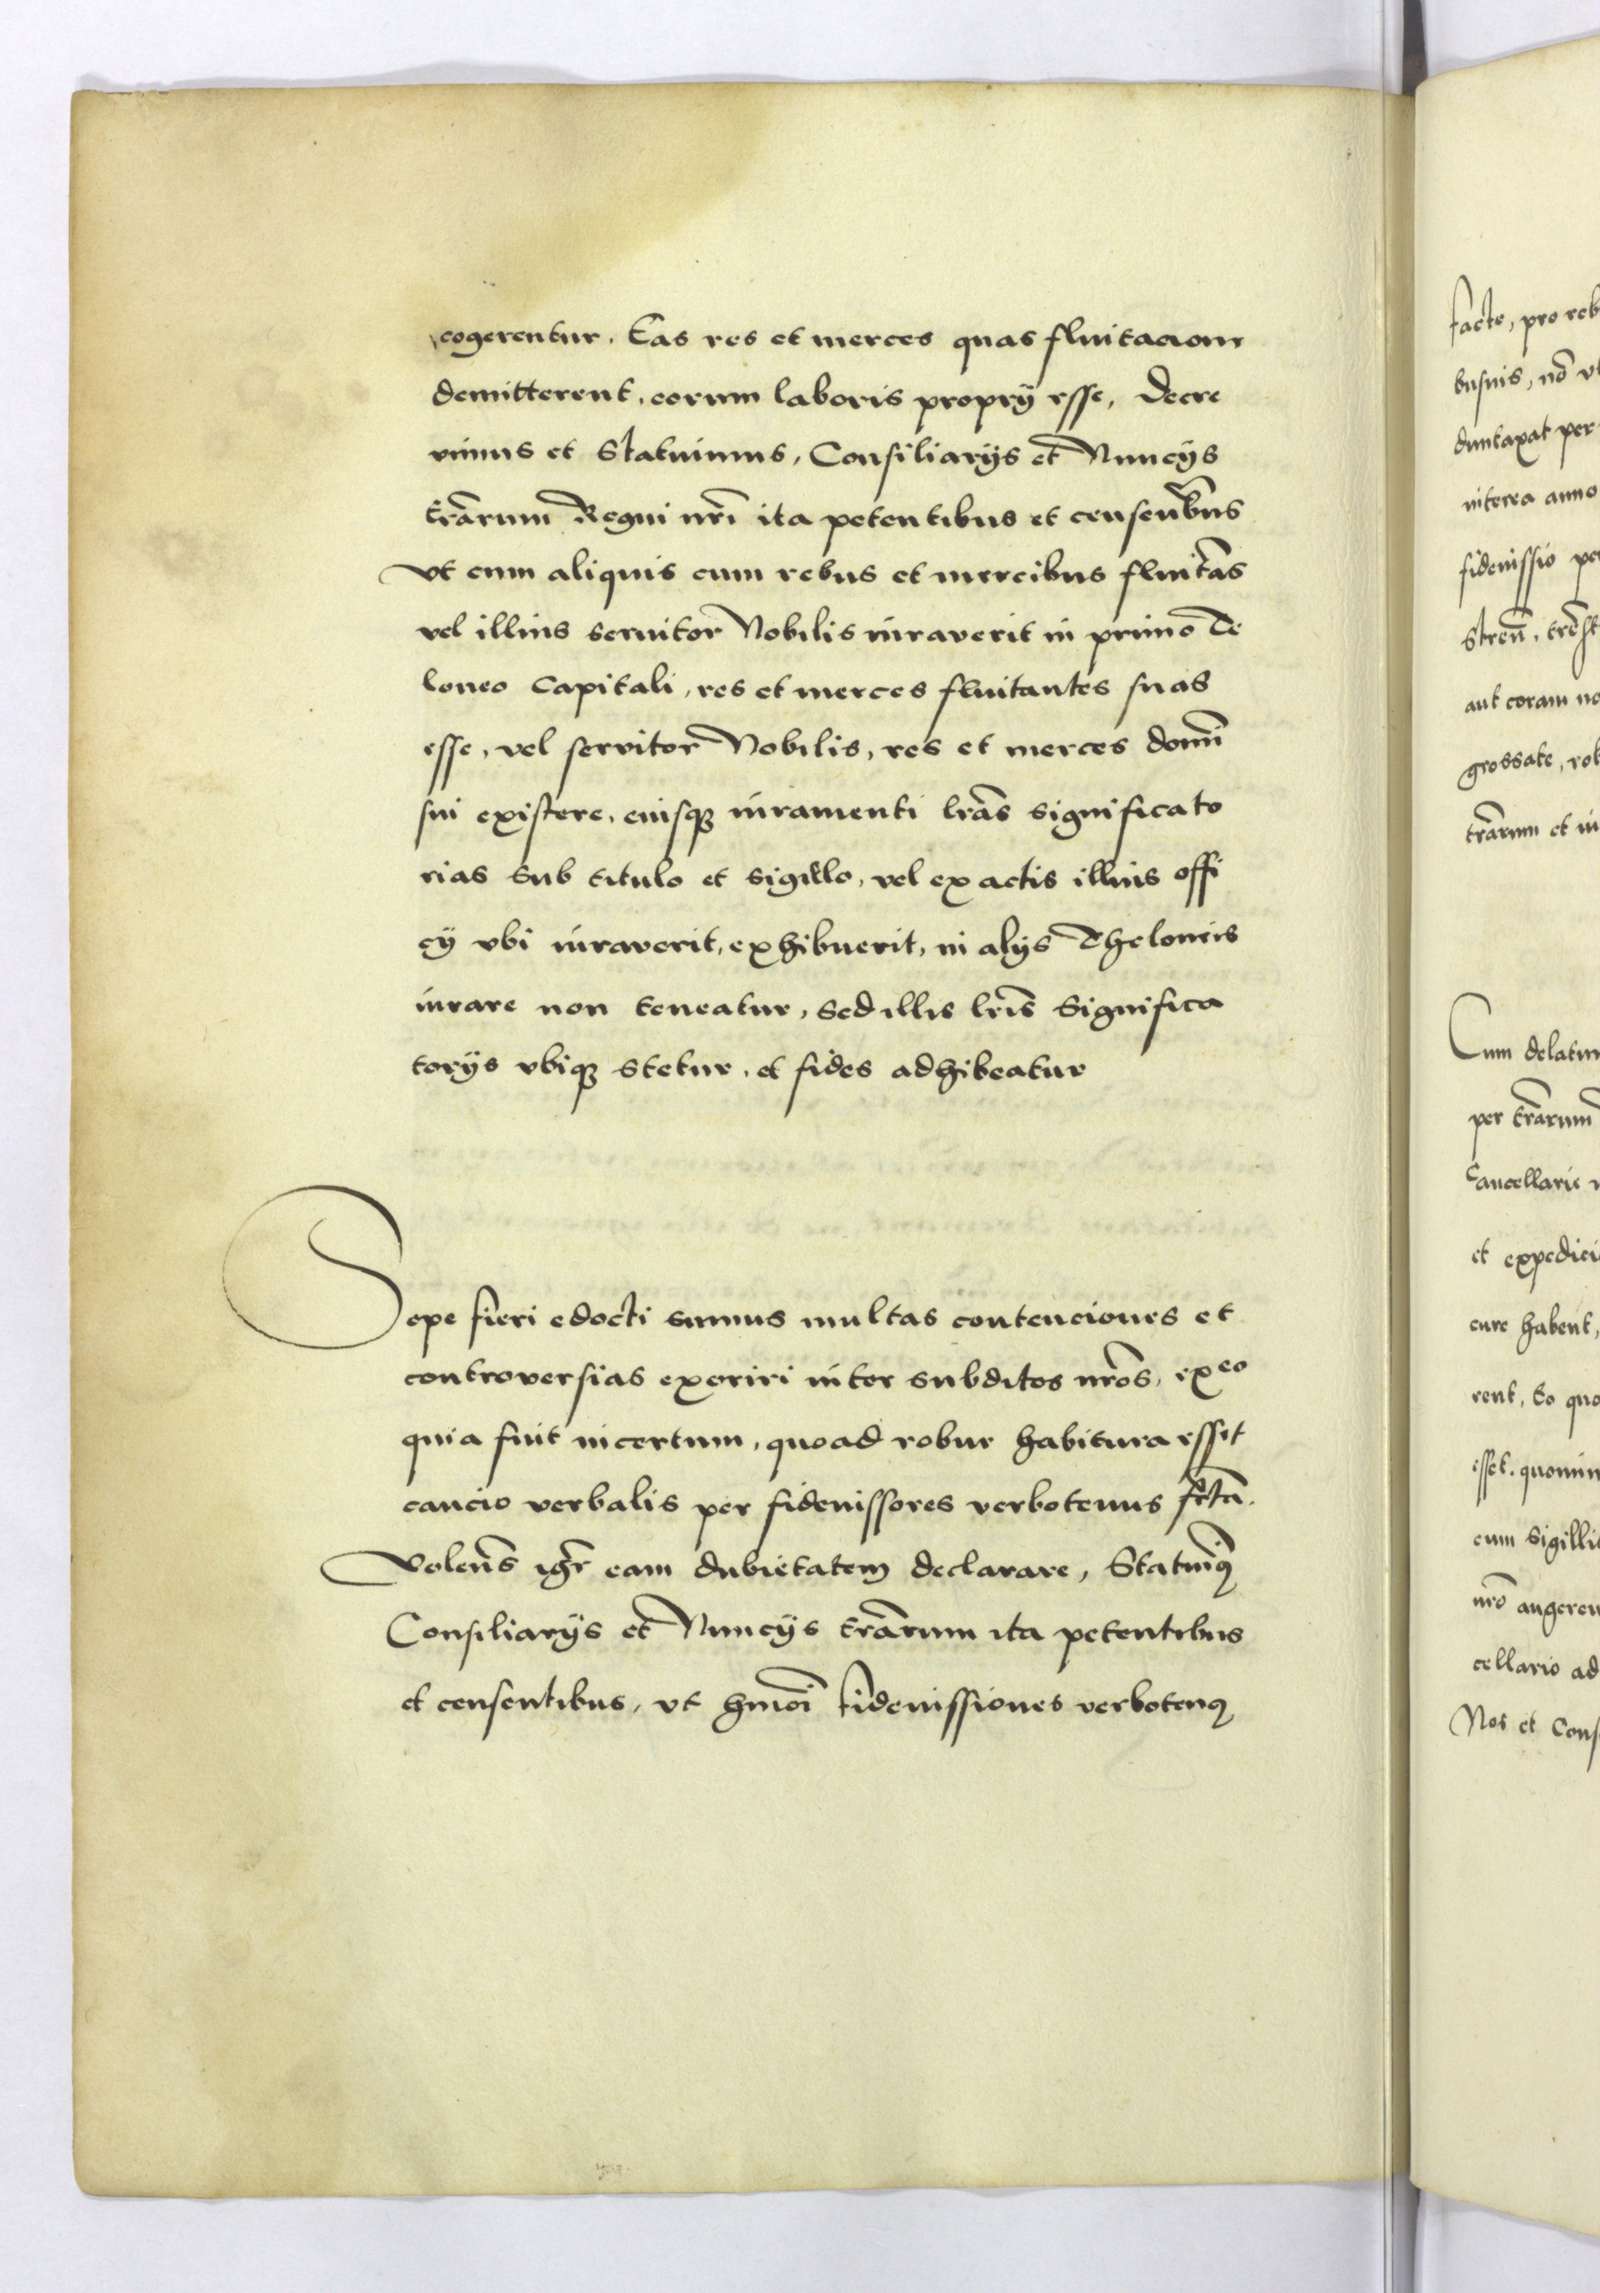 cogerentur. Eas res et merces quas fluitacioni
demitterent, eorum laboris proprÿ esse, decre
uimus et Statuimus, Consiliarÿs et Nuncÿs
trarum Regni nri ita petentibus et censentbus
vt cum aliquis cum rebus et mercibus fluitās
vel illius seruitor Nobilis iuraverit in primo Te
loneo capitali, res et merces fluitantes suas
esse, vel servitor Nobilis, res et merces domi
sui existere, eiusqȝ iuramenti lras significato
rias sub titulo et sigillo, vel ex actis illius offi
cÿ vbi iuraverit, exhibuerit, in alÿs Theloneis
iurare non teneatur, sed illis lris significa
torÿs vbiqȝ stetur, et fides adhibeatur
Sepe fieri edocti sumus multas contenciones et
controversias exoriri inter subditos nros, ex eo
quia fuit incertum, quoad robur habitura esset
caucio verbalis per fideiussores verbotenus fcta.
Volens igr eam dubietatem declarare, Statuimꝰ
Consiliarÿs et Nuncÿs trarum ita petentibus
et censentibus, vt hmoi fideiussiones verbotenꝰ
facte, pro reb
busuis, nō vt
duntaxat per
interea anno
fideiussio pe
aut coram no
grossate, rob
trarum et in
Cum delatum
per trarum
Cancellarie
et expedici
cure habent,
rent, Eo quo
esset. quomin
cum sigilli
nro augeren
cellario ad
Nos et Cons